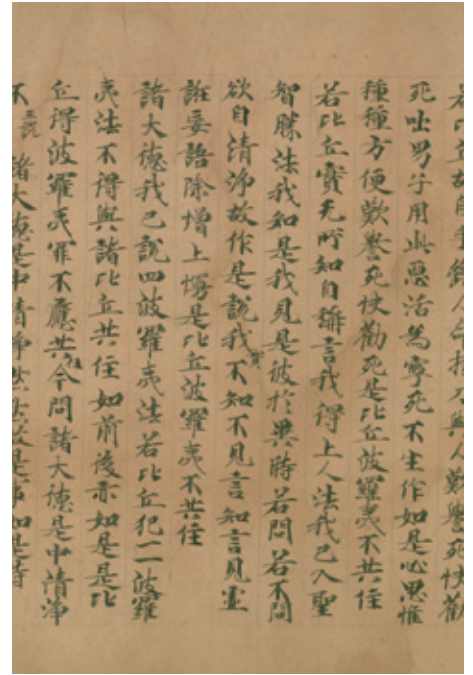 若比丘故自手斷人命持刀與人歎譽死快勸
死咄男子用此惡活為寧死不生作如是心思惟
種種方便歎譽死快勸死是比丘波羅夷不共住
若比丘實无所知自稱言我得上人法我已入聖
智勝法我知是我見是彼於異時若問若不問
欲自清淨故作是說我實不知不見言知言見虛
誑妄語除增上慢是比丘波羅夷不共住
諸大德我已說四波羅夷法若比丘犯一一波羅
夷法不得與諸比丘共住如前後亦如是是比
丘得波羅夷罪不應共住今問諸大德是中清淨
不三說 諸大德是中清淨默然故是事如是持